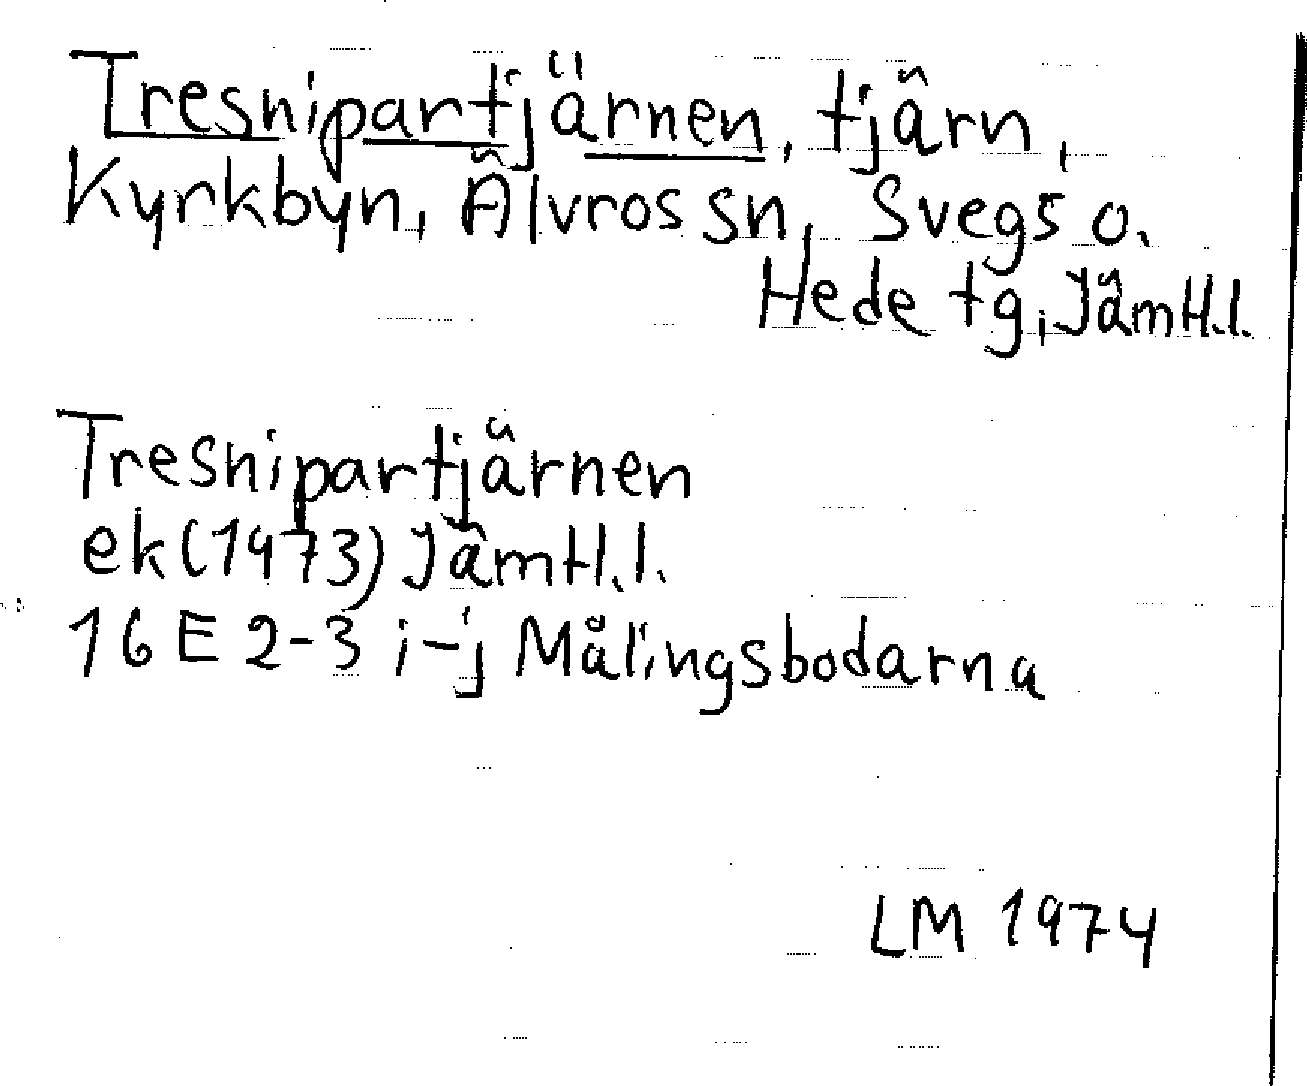 Tresnipartjärnen, tjärn,
Kyrkbyn, Älvros sn, Svegs o.
Hede tg, Jämtl.l.
Tresnipartjärnen
ek (1973) Jämtl.l.
16 E 2-3 i-j Målingsbodarna
LM 1974